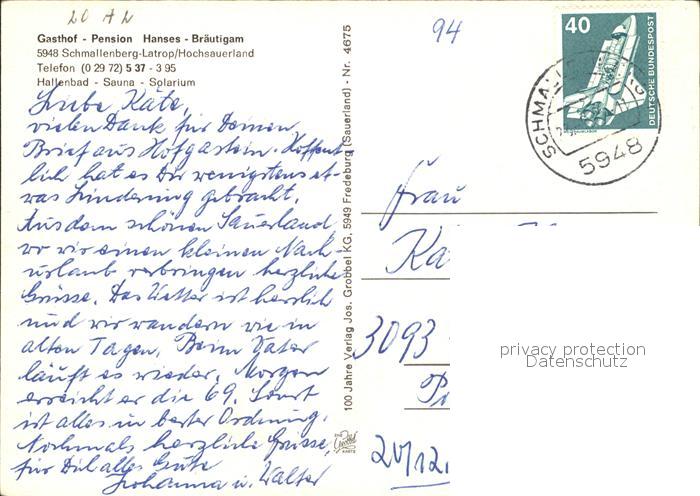 20 A2
Gasthof - Pension Hanses - Bräutigam
5948 Schmallenberg-Latrop/Hochsauerland
Telefon (0 29 72) 5 37 - 3 95
Hallenbad - Sauna - Solarium
Liebe Käte,
vielen Dank für Deinen
Brief aus Hofgastein. Hoffent
lich hat es Dir wenigstens et-
was Linderung gebracht.
Aus dem schönen Sauerland,
wo wir einen kleinen Nach-
urlaub verbringen herzliche
Grüsse. Das Wetter ist herrlich
und wir wandern wie in
alten Tagen. Beim Vater
läuft es wieder. Morgen
erreicht er die 69. Sonst
ist alles in bester Ordnung.
Nochmals herzliche Grüsse,
für Dich alles Gute
Johanna u. Walter
100 Jahre Verlag Jos. Grobbel KG, 5949 Fredeburg (Sauerland) - Nr. 4675
94
40
DEUTSCHE BUNDESPOST
SCHMALLE
5948
Frau
Kä
3093
20/12.
privacy protection
Datenschutz